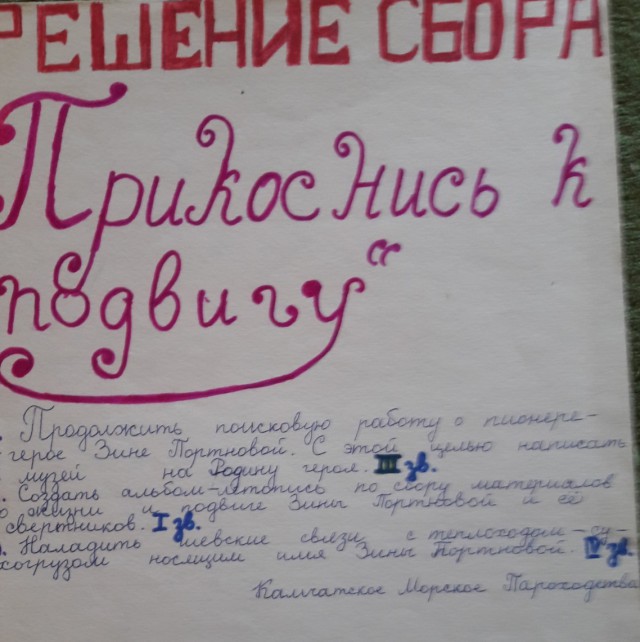 РЕШЕНИЕ СБОРА
Прикоснись к
подвигу"
Продолжить поисковую работу о пионере-
герое Зине Портновой. С этой целью написать
музей на Родину героя. III зв.
Создать альбом-летопись по сбору материалов
о жизни и подвиге Зины Портновой и её
сверстников. I зв.
Наладить шевские связи с теплоходом-су-
хогрузом носящим имя Зины Портновой. IV зв.
Камчатское Морское Пароходство